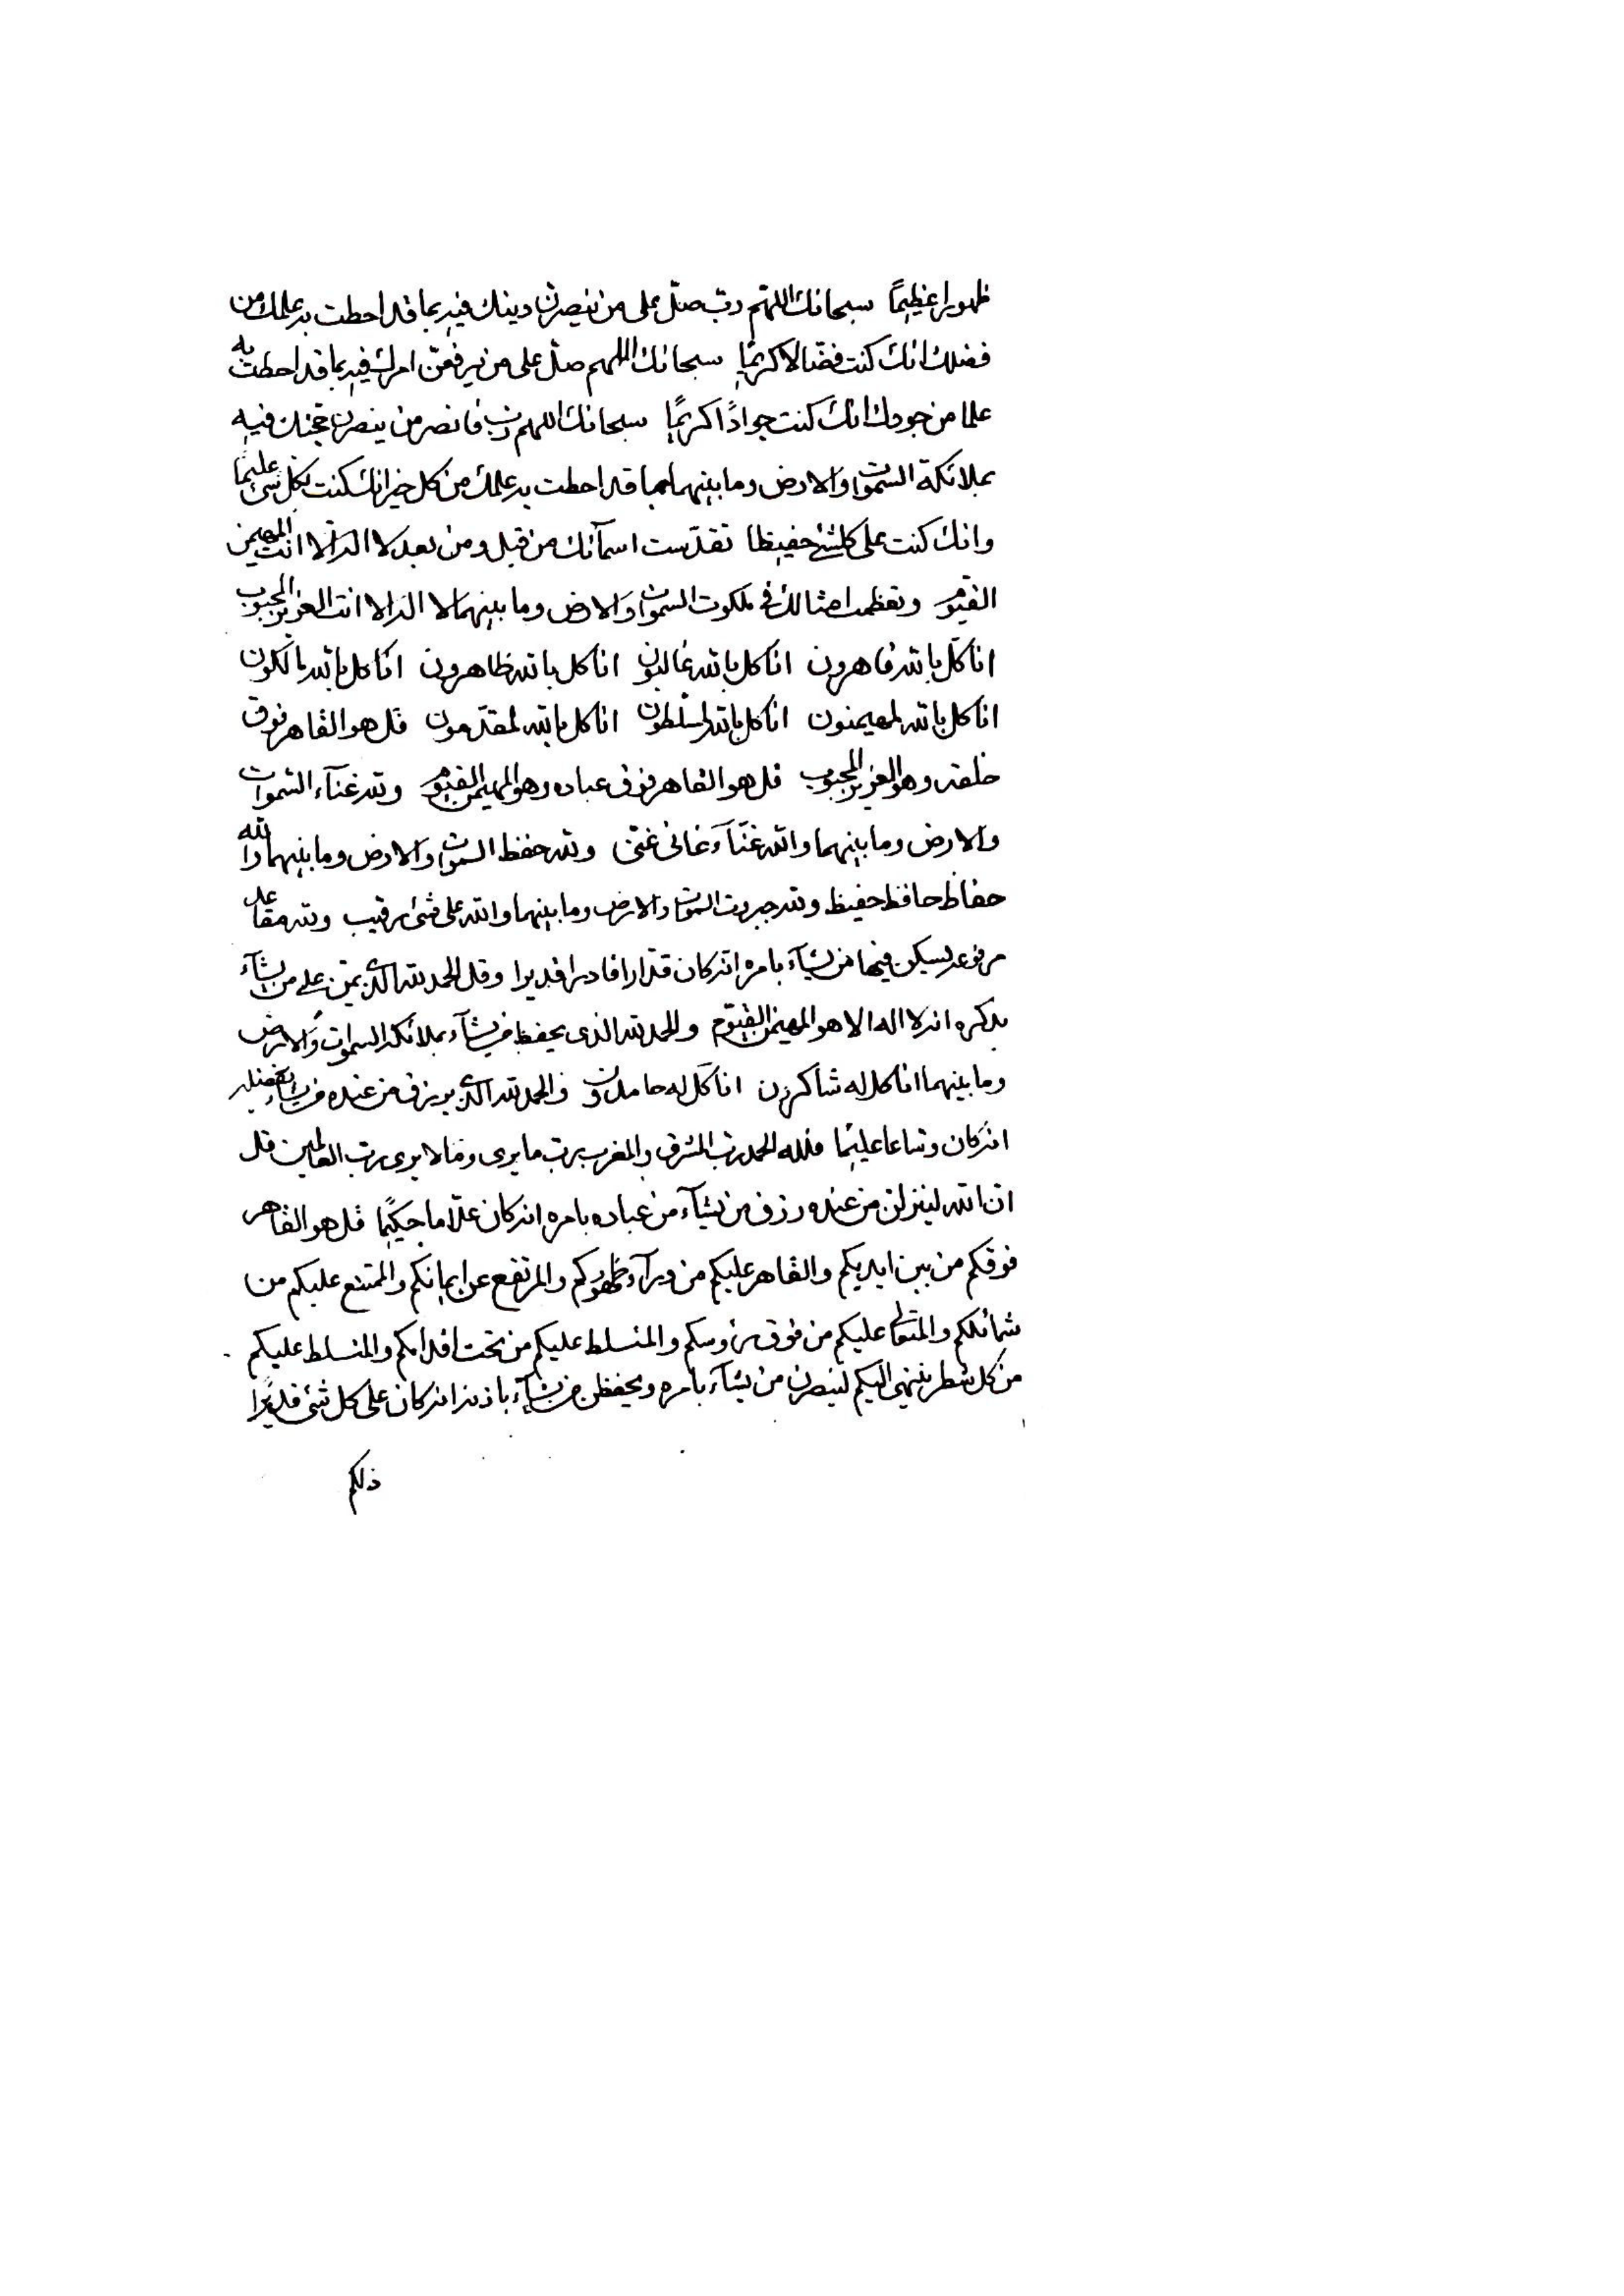 ظهورا عظیما سبحانك اللهم رب صل على من ینصرن دینك فیه بما قد احطت به علمك من
فضلك انك كنت فضالا كریما سبحانك اللهم صل على من یرفعن امرك فیه بما قد احطت به
علما من جودك انك كنت جوادا كریما سبحانك اللهم رب فانصر من ینصرن حجتك فیه
بملائكة السموات والارض وما بینهما بما قد احطت به علمك من كل خیر انك كنت بكل شئ علیما
وانك كنت على كلشئ حفیظا تقدست اسمآئك من قبل ومن بعد لا اله الا انت المهیمن
القیوم وتعظمت امثالك فی ملكوت السموات والارض وما بینهما لا اله الا انت العزیز المحبوب
انا كل بالله قاهرون انا كل بالله غالبون انا كل بالله ظاهرون انا كل بالله مالكون
انا كل بالله لمهیمنون انا كل بالله لمسلطون انا كل بالله لمقدمون قل هو القاهر فوق
خلقه وهو العزیز المحبوب قل هو القاهر فوق عباده وهو المهیمن القیوم ولله غنآء السموات
والارض وما بینهما والله غنآء غانی غنی ولله حفظ السموات والارض وما بینهما والله
حفاظ حافظ حفیظ ولله جبروت السموات والارض وما بینهما والله على شئ رقیب ولله مقاعد
مرفوعه یسكن فیها من یشآء بامره انه كان قدارا قادرا قدیرا وقل الحمد لله الذی یمن على من یشآء
بذكره انه لا اله الا هو المهیمن القیوم والحمد لله الذی یحفظ من یشآء بملائكة السموات والارض
وما بینهما انا كل له شاكرون انا كل له حامدون والحمد لله الذی یرزق من عنده من یشآء بفضله
انه كان وساعا علیما فلله الحمد رب المشرق والمغرب رب ما یرى وما لا یرى رب العالمین قل
ان الله لینزلن من عنده رزق من یشآء من عباده بامره انه كان علاما حكیما قل هو القاهر
فوقكم من بین ایدیكم والقاهر علیكم من ورآء ظهوركم والمرتفع عن ایمانكم والممتنع علیكم من
شمائلكم والمتعالی علیكم من فوق رؤسكم والمتسلط علیكم من تحت اقدامكم والمتسلط علیكم
من كل شطر ینتهی الیكم لینصرن من یشآء بامره ویحفظن من یشآء باذنه انه كان على كل شئ قدیرا
ذلكم